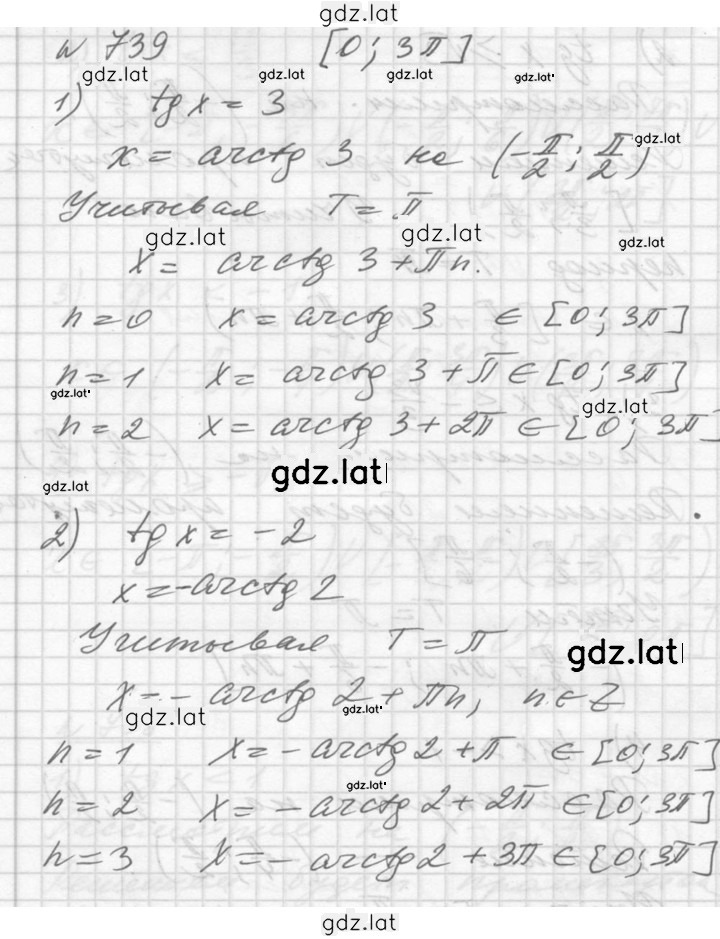 gdz.lat
№ 739 [0; 3π]
gdz.lat gdz.lat gdz.lat
1) tg x = 3
gdz.lat
x = arctg 3 на (-π/2; π/2)
Учитывая T = π
gdz.lat gdz.lat gdz.lat
x = arctg 3 + πn.
n = 0 x = arctg 3 ∈ [0; 3π]
n = 1 x = arctg 3 + π ∈ [0; 3π]
gdz.lat gdz.lat
n = 2 x = arctg 3 + 2π ∈ [0; 3π]
gdz.lat
gdz.lat
2) tg x = -2
x = -arctg 2
Учитывая T = π
gdz.lat
x = - arctg 2 + πn, n ∈ Z
gdz.lat gdz.lat
n = 1 x = - arctg 2 + π ∈ [0; 3π]
gdz.lat
n = 2 x = - arctg 2 + 2π ∈ [0; 3π]
n = 3 x = - arctg 2 + 3π ∈ [0; 3π]
gdz.lat